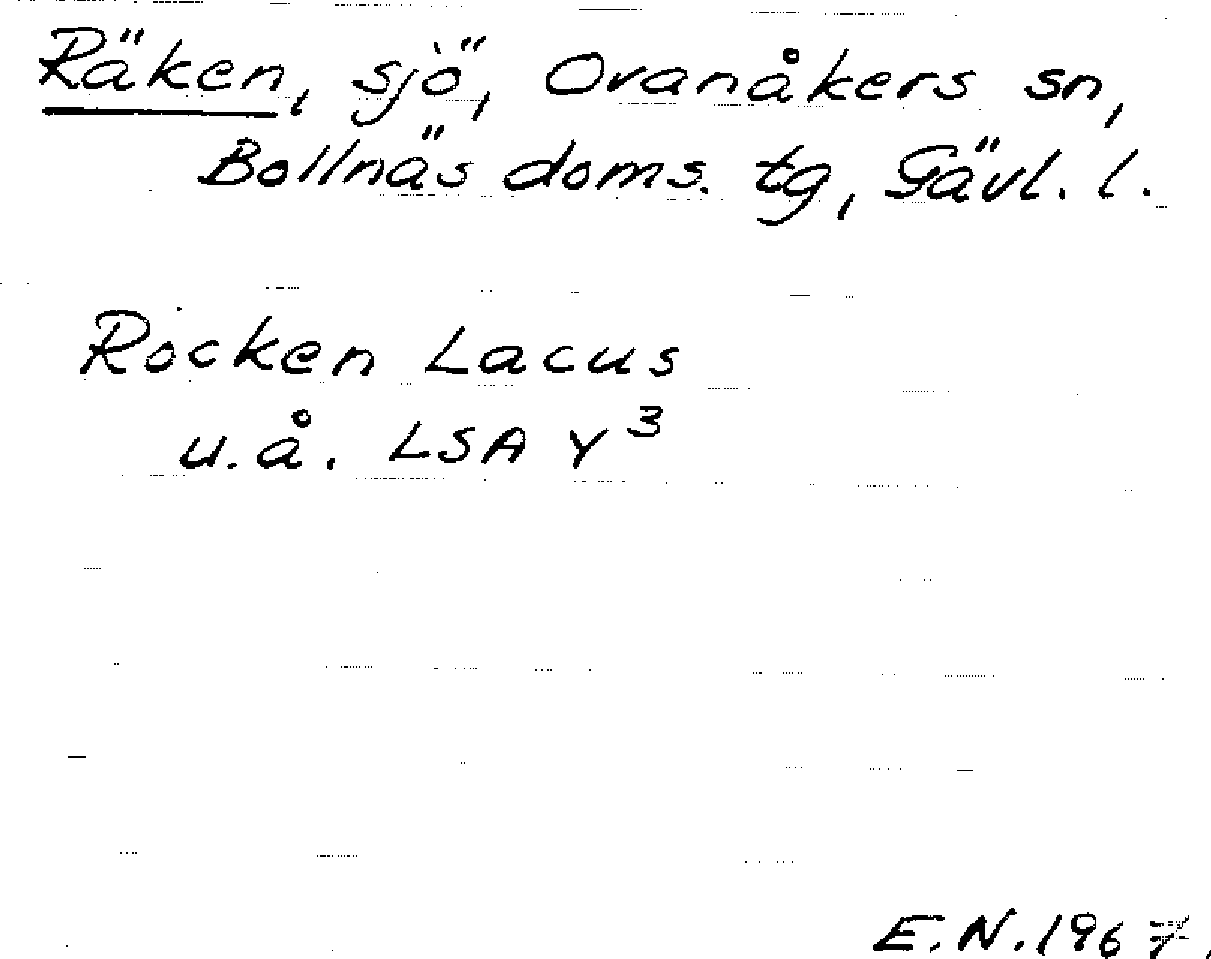 Räken, sjö, Ovanåkers sn,
Bollnäs doms. tg, Gävl. l.
Rocken Lacus
u.å. LSA Y³
E.N. 1967.